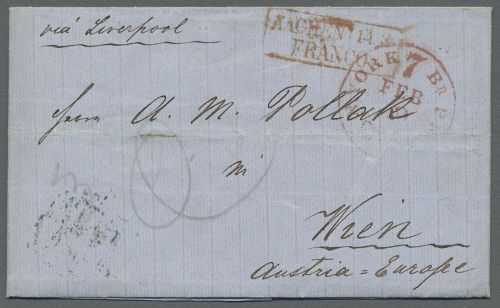 via Liverpool
AACHEN
FRANCO
YORK 7 BR P
FEB
Herrn A. M. Pollak
in
Wien
Austria = Europe